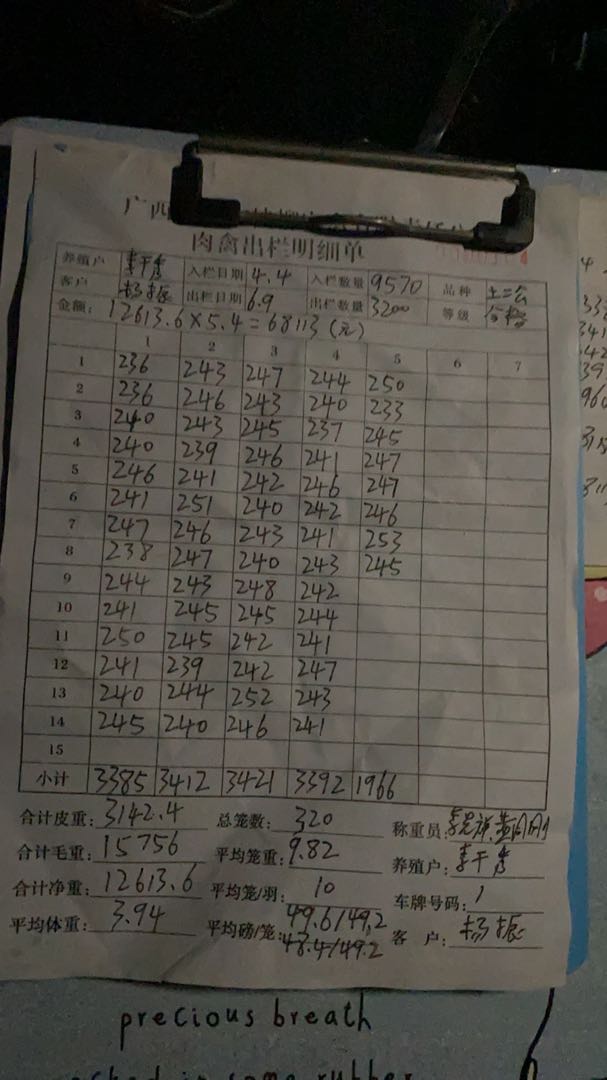 广西
肉禽出栏明细单
养殖户 李干秀 入栏日期 4.4 入栏数量 9570 品种 土二公
客户 杨振 出栏日期 6.9 出栏数量 3200 等级 合格
金额: 12613.6×5.4=68113(元)
1 2 3 4 5 6 7
1 236 243 247 244 250
2 236 246 243 240 233
3 240 243 245 237 245
4 240 239 246 241 247
5 246 241 242 246 247
6 241 251 240 242 246
7 247 246 243 241 253
8 238 247 240 243 245
9 244 243 248 242
10 241 245 245 244
11 250 245 242 241
12 241 239 242 247
13 240 244 252 243
14 245 240 246 241
15
小计 3385 3412 3421 3392 1966
合计皮重: 3142.4 总笼数: 320 称重员:
合计毛重: 15756 平均笼重: 9.82 养殖户: 李干秀
合计净重: 12613.6 平均笼/羽: 10 车牌号码: 1
平均体重: 3.94 平均磅/笼: 49.6/49.2 48.4/49.2 客户: 杨振
precious breath
in some rubber